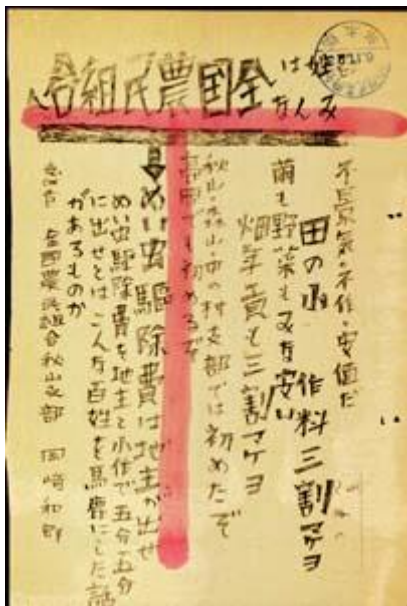 姓は
みんな
全国農民組合へ
不景気・不作・安値だ
田の小作料三割マケヨ
繭も野菜もみな安い
畑年貢も三割マケヨ
秋山・森山・市の村支部では初めたぞ
でも初めろぞ
めい虫驅除費は地主が出せ
めい虫驅除費を地主と小作で五分五分
に出せとはこんな百姓を馬鹿にした話
があるものか
全国農民組合秋山支部 岡崎和郎